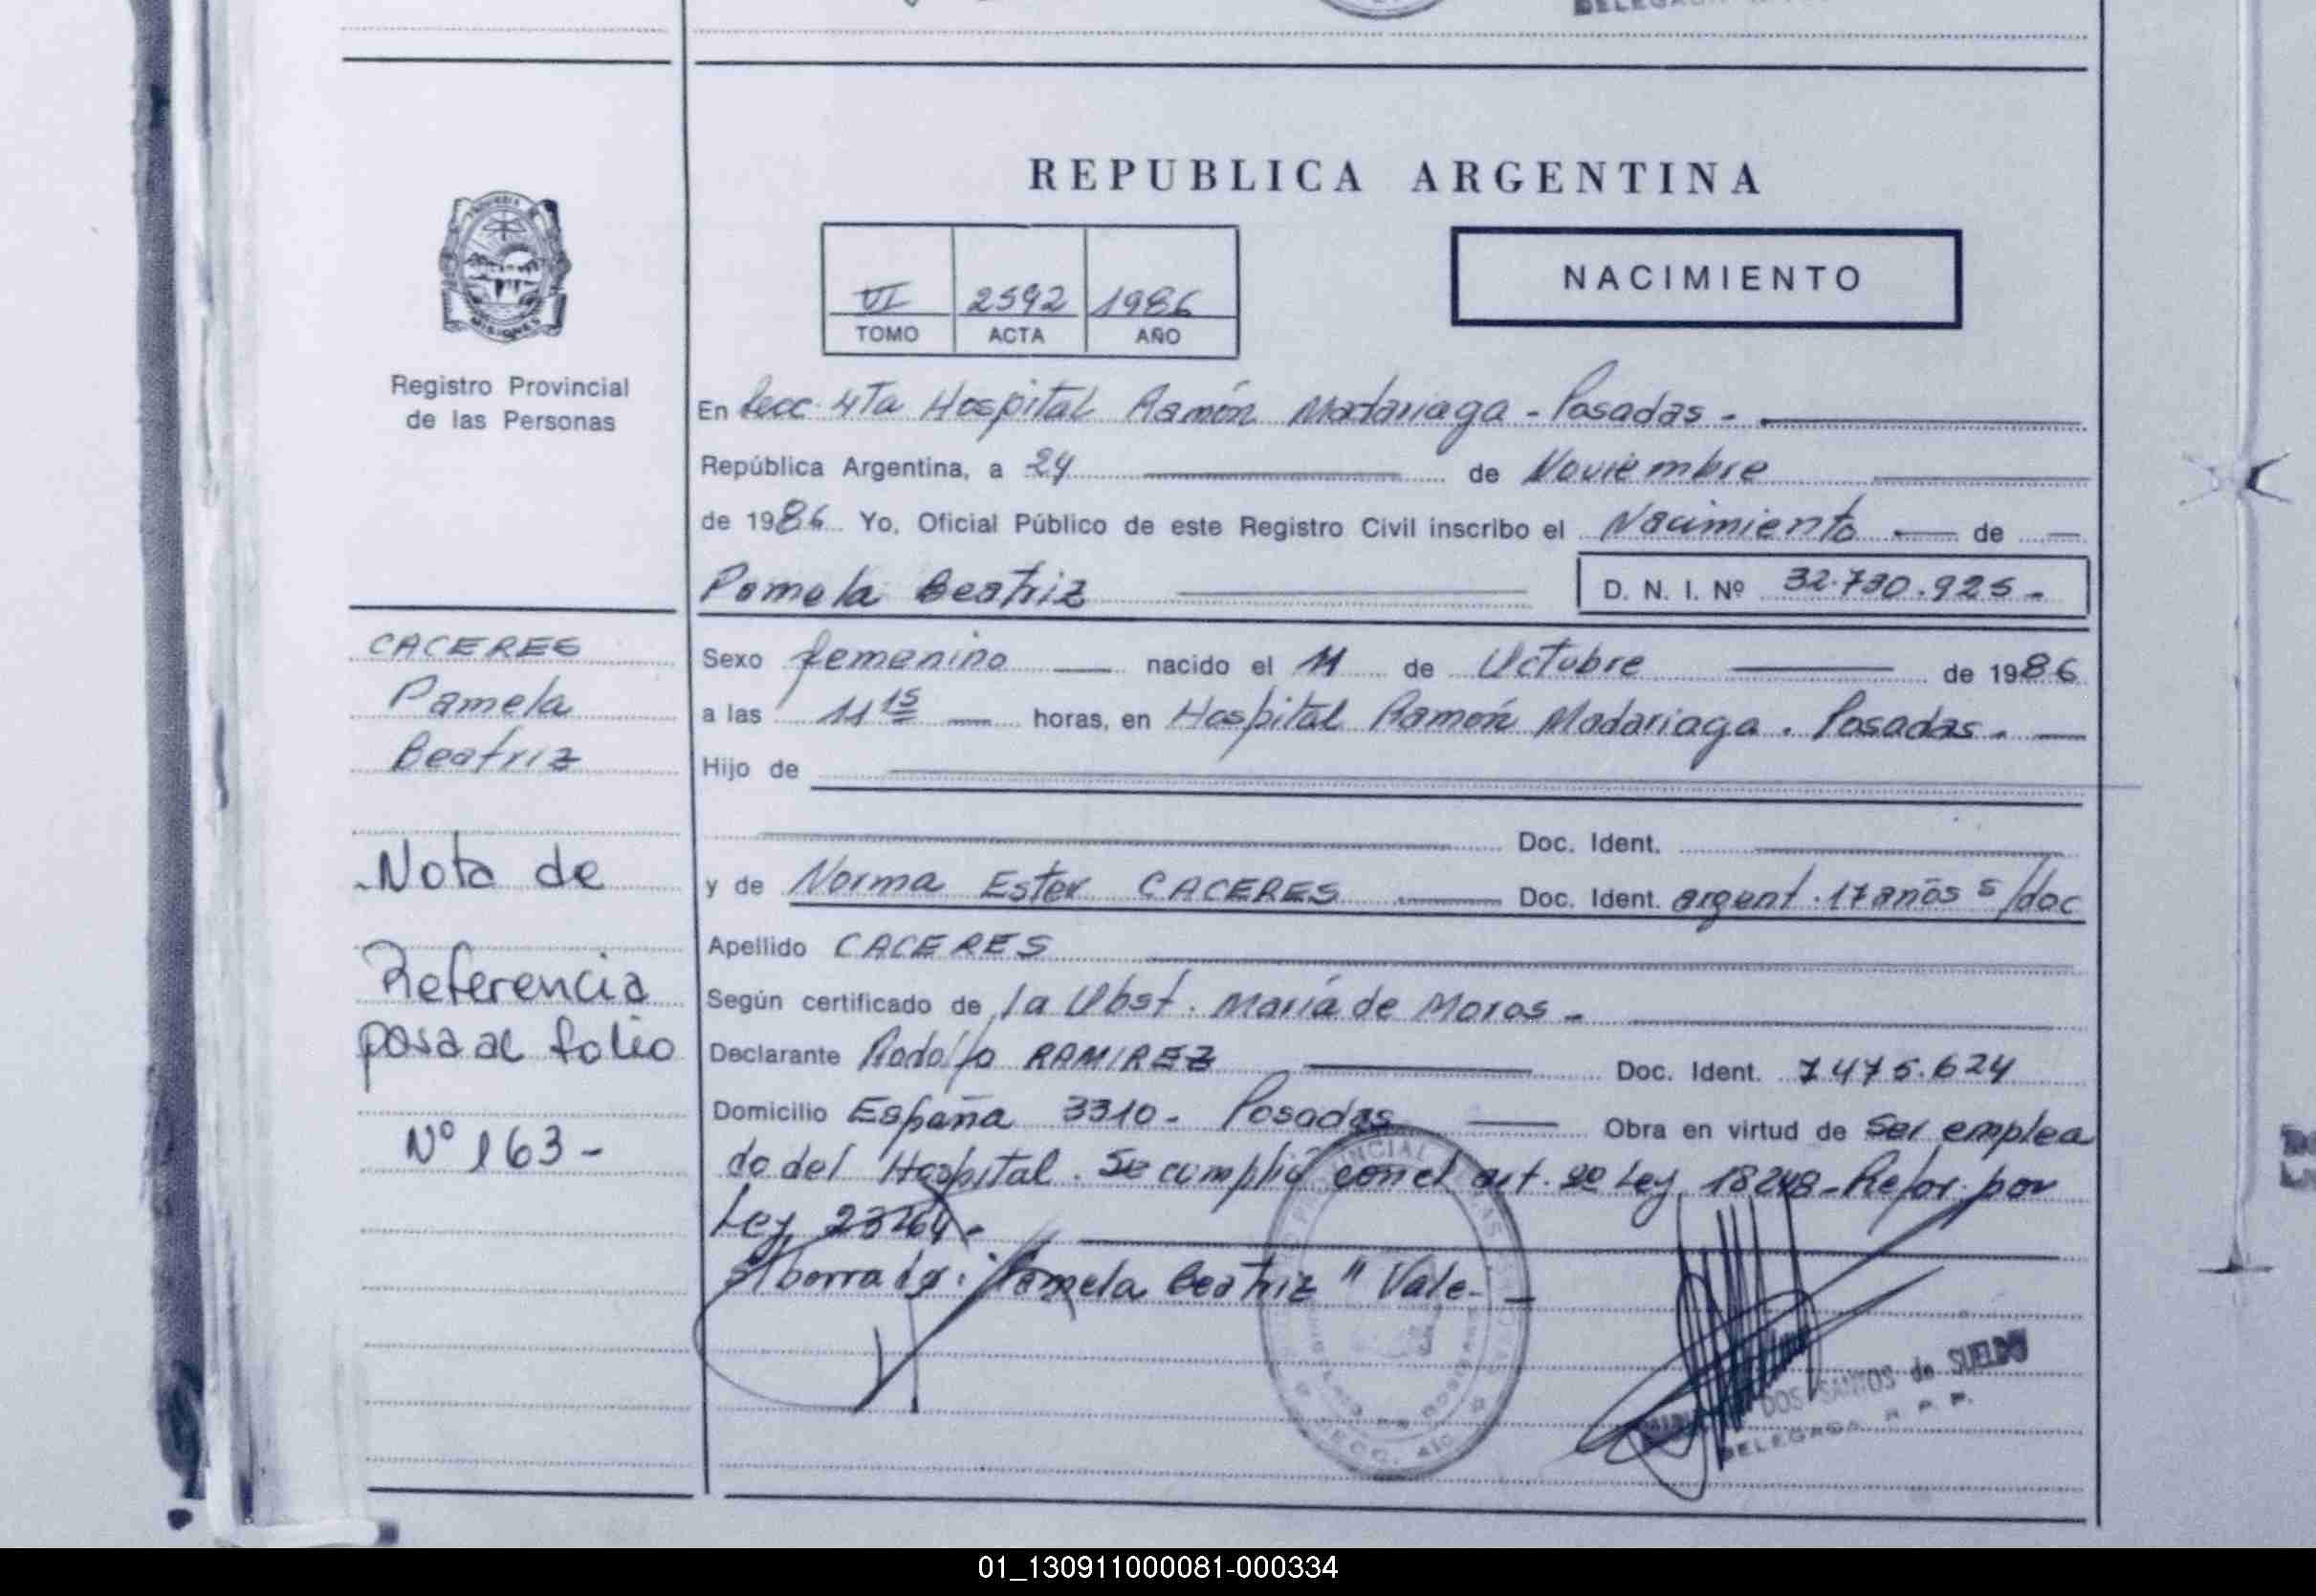 REPUBLICA ARGENTINA
NACIMIENTO
VI 2592 1986
TOMO ACTA AÑO
Registro Provincial
de las Personas
En Secc. 4Ta Hospital Ramón Madariaga - Posadas -
República Argentina, a 24 de Noviembre
de 1986 Yo, Oficial Público de este Registro Civil inscribo el Nacimiento de
Pamela Beatriz D. N. I. Nº 32.730.925 -
CACERES
Pamela
Beatriz
Nota de
Referencia
pasa al folio
Nº 163 -
Sexo femenino nacido el 11 de Octubre de 1986
a las 11 15 horas, en Hospital Ramón Madariaga. Posadas.
Hijo de
Doc. Ident.
y de Norma Ester CACERES Doc. Ident. argent. 17 años s/doc
Apellido CACERES
Según certificado de la Obst. María de Moros -
Declarante Rodolfo RAMIREZ Doc. Ident. 7.475.624
Domicilio España 3310 - Posadas Obra en virtud de ser emplea
do del Hospital. Se cumplió con el art. 2º Ley 18248 - Refor. por
Ley 23264 -
S/borrado: "Pamela Beatriz" Vale -
DOS SANTOS de SUELDO
DELEGADA R. P. P.
01_130911000081-000334